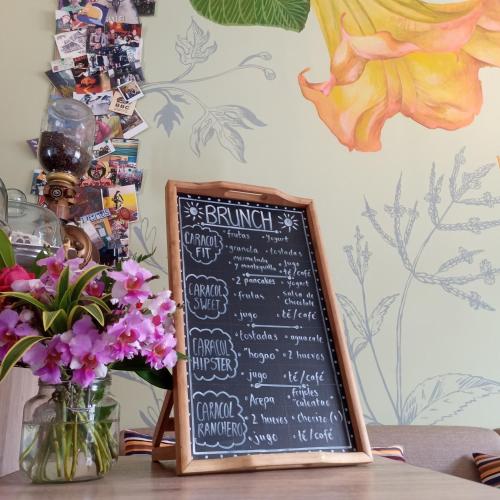 BRUNCH
CARACOL FIT
• frutas • Yogurt
• granola • tostadas
mermelada y mantequilla
• Jugo
• té/café
CARACOL SWEET
• 2 pancakes • yogurt
• frutas • salsa de chocolate
• jugo • té/café
CARACOL HIPSTER
• tostadas • aguacate
• "hogao" • 2 huevos
• jugo • té/café
CARACOL RANCHERO
• Arepa • Frijoles "calentao"
• 2 huevos • Chorizo (1)
• jugo • té/café
BBC